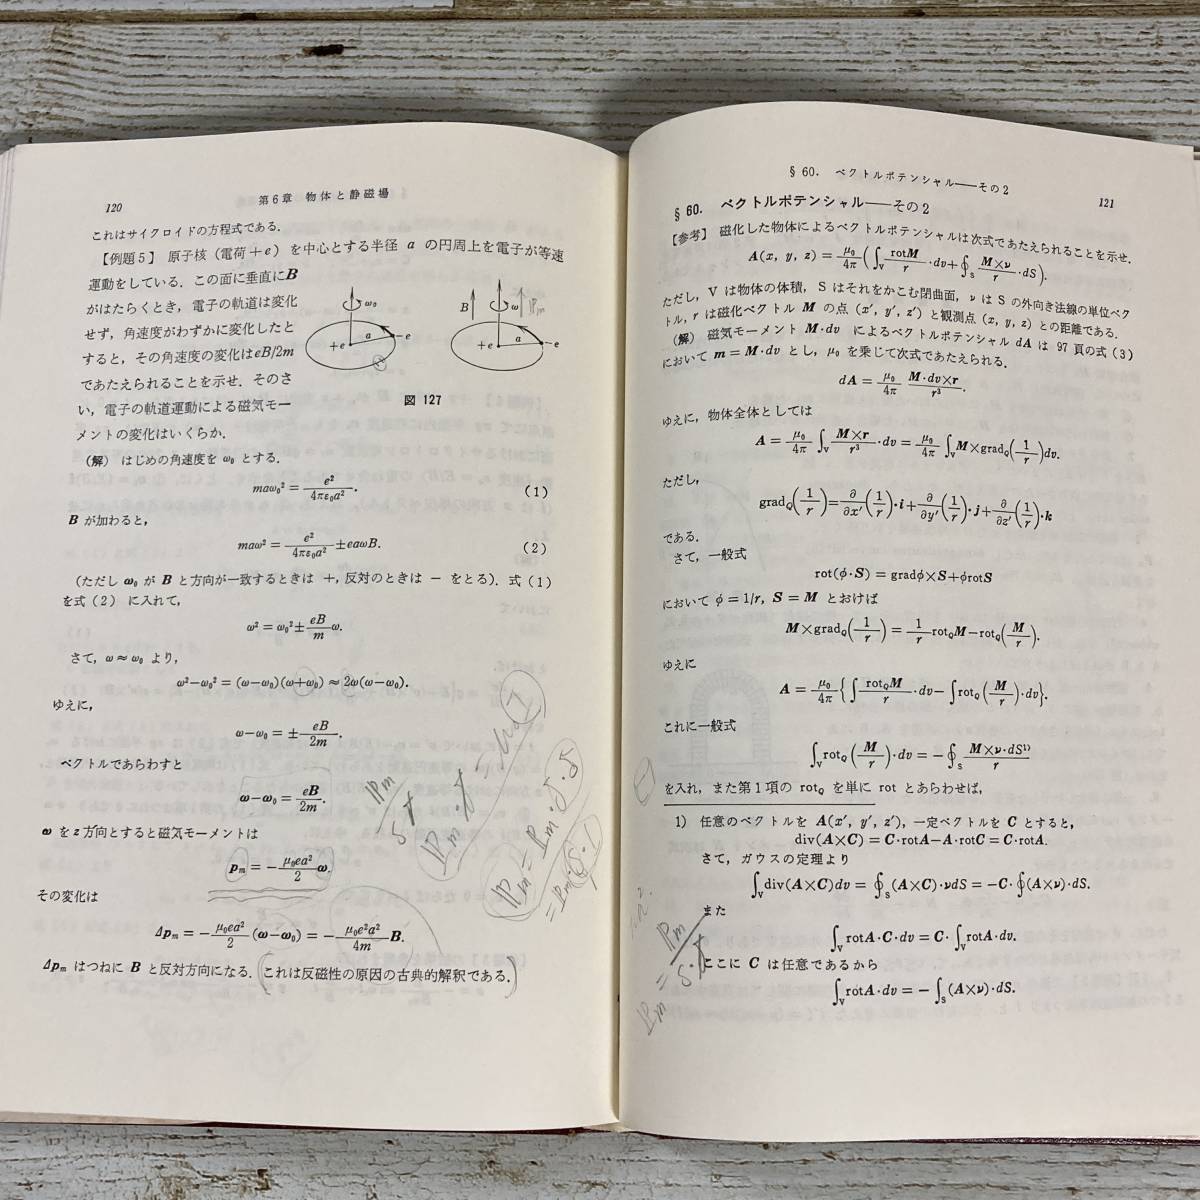 120 第6章 物体と静磁場
これはサイクロイドの方程式である.
【例題5】 原子核(電荷+e)を中心とする半径 a の円周上を電子が等速
運動をしている. この面に垂直にB
がはたらくとき, 電子の軌道は変化
せず, 角速度がわずかに変化したと
すると, その角速度の変化はeB/2m
であたえられることを示せ. そのさ
い, 電子の軌道運動による磁気モー
メントの変化はいくらか.
ω₀ a −e +e
B ω Pm a −e +e
図 127
(解) はじめの角速度を ω₀ とする.
maω₀² = e²/4πε₀a². (1)
B が加わると,
maω² = e²/4πε₀a² ± eaωB. (2)
(ただし ω₀ が B と方向が一致するときは +, 反対のときは − をとる). 式(1)
を式(2)に入れて,
ω² = ω₀² ± eB/m ω.
さて, ω≈ω₀ より,
ω²−ω₀² = (ω−ω₀)(ω+ω₀) ≈ 2ω(ω−ω₀).
ゆえに,
ω−ω₀ = ± eB/2m.
ベクトルであらわすと
ω−ω₀ = eB/2m.
ω を z 方向とすると磁気モーメントは
pm = − μ₀ea²/2 ω.
その変化は
Δpm = − μ₀ea²/2 (ω−ω₀) = − μ₀e²a²/4m B.
Δpm はつねに B と反対方向になる. (これは反磁性の原因の古典的解釈である.)
§60. ベクトルポテンシャル——その2 121
§60. ベクトルポテンシャル——その2
【参考】 磁化した物体によるベクトルポテンシャルは次式であたえられることを示せ.
A(x, y, z) = μ₀/4π (∫V rotM/r ·dv + ∮S M×ν/r ·dS).
ただし, V は物体の体積, S はそれをかこむ閉曲面, ν は S の外向き法線の単位ベク
トル, r は磁化ベクトル M の点 (x′, y′, z′) と観測点 (x, y, z) との距離である.
(解) 磁気モーメント M·dv によるベクトルポテンシャル dA は 97 頁の式(3)
において m=M·dv とし, μ₀ を乗じて次式であたえられる.
dA = μ₀/4π M·dv×r/r³.
ゆえに, 物体全体としては
A = μ₀/4π ∫V M×r/r³ ·dv = μ₀/4π ∫V M×gradQ(1/r)dv.
ただし,
gradQ(1/r) = ∂/∂x′(1/r)·i + ∂/∂y′(1/r)·j + ∂/∂z′(1/r)·k
である.
さて, 一般式
rot(φ·S) = gradφ×S + φrotS
において φ=1/r, S=M とおけば
M×gradQ(1/r) = 1/r rotQM − rotQ(M/r).
ゆえに
A = μ₀/4π {∫ rotQM/r ·dv − ∫rotQ(M/r)·dv}.
これに一般式
∫V rotQ(M/r)·dv = −∮S M×ν·dS¹⁾/r
を入れ, また第1項の rotQ を単に rot とあらわせば,
1) 任意のベクトルを A(x′, y′, z′), 一定ベクトルを C とすると,
div(A×C) = C·rotA − A·rotC = C·rotA.
さて, ガウスの定理より
∫V div(A×C)dv = ∮S(A×C)·νdS = −C·∮(A×ν)·dS.
また
∫V rotA·C·dv = C·∫V rotA·dv.
ここに C は任意であるから
∫V rotA·dv = −∫S(A×ν)·dS.